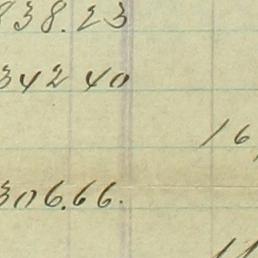 838.23
342 40
16,
306.66.